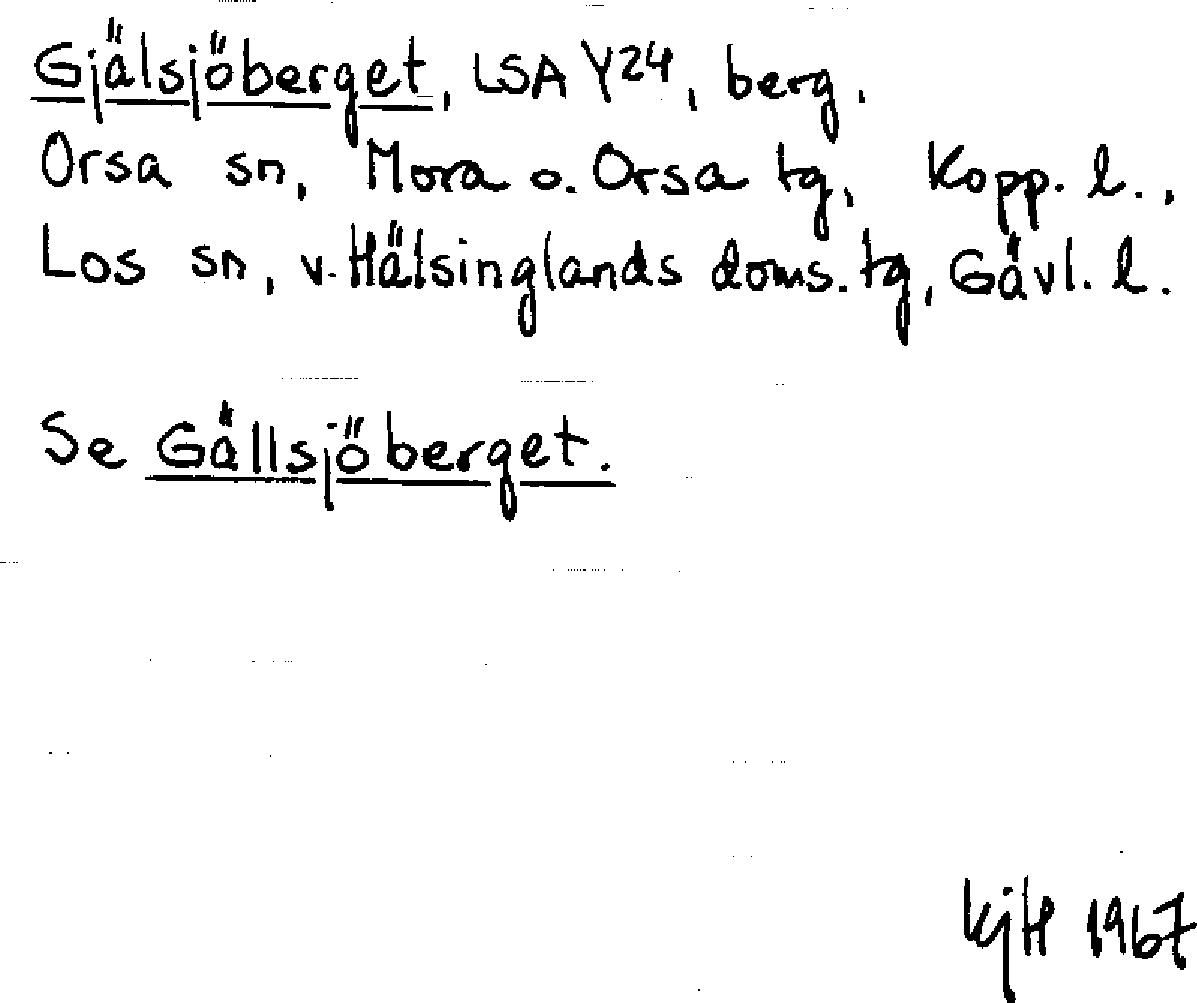 Gjälsjöberget, LSA Y24, berg.
Orsa sn, Mora o. Orsa tg, Kopp. l.,
Los sn, v. Hälsinglands doms. tg, Gävl. l.
Se Gällsjöberget.
KjH 1967